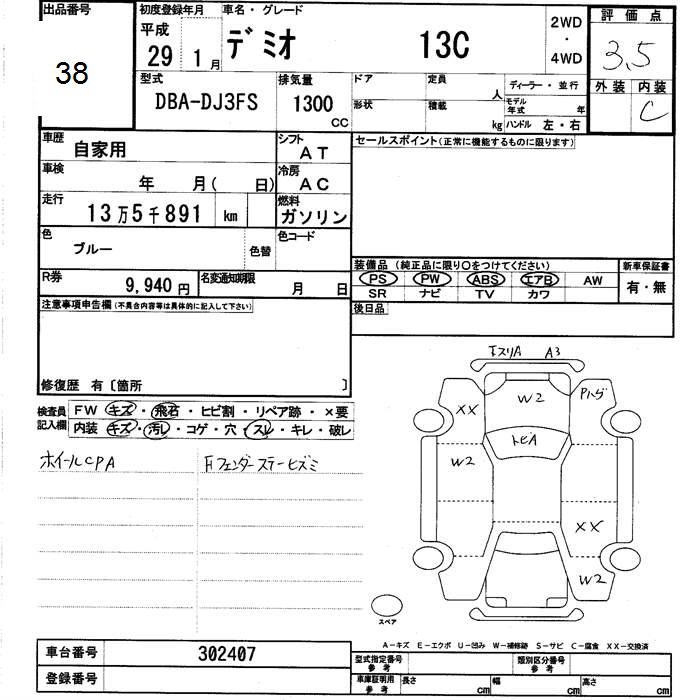 出品番号
38
初度登録年月
平成
29年 1月
車名・グレード
デミオ 13C
2WD
・
4WD
評価点
3.5
外装 内装
C
型式
DBA-DJ3FS
排気量
1300
CC
ドア 定員
人
形状 積載
kg
ディーラー・並行
モデル年式 年
ハンドル 左・右
車歴 自家用
シフト AT
車検 年 月( 日)
冷房 AC
走行 13万5千891 km
燃料 ガソリン
色 ブルー 色替
色コード
R券 9,940円
名変通知期限 月 日
セールスポイント(正常に機能するものに限ります)
装備品 (純正品に限り○をつけてください)
PS PW ABS エアB AW
SR ナビ TV カワ
新車保証書
有・無
後日品
注意事項申告欄(不具合内容等は具体的に記入して下さい)
修復歴 有〔箇所 〕
検査員記入欄
FW キズ・飛石・ヒビ割・リペア跡・×要
内装 キズ・汚レ・コゲ・穴・スレ・キレ・破レ
ホイールCPA
Fフェンダーステーヒズミ
下スリA A3
XX W2 Pハゲ
トビA
W2
XX
W2
スペア
A-キズ E-エクボ U-凹み W-補修跡 S-サビ C-腐食 XX-交換済
車台番号 302407
登録番号
型式指定番号 参考
類別区分番号 参考
車庫証明用 参考
長さ cm 幅 cm 高さ cm